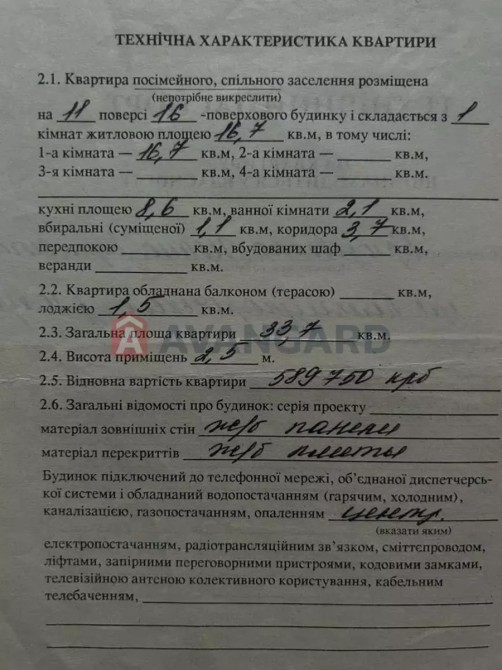 ТЕХНІЧНА ХАРАКТЕРИСТИКА КВАРТИРИ
2.1. Квартира посімейного, спільного заселення розміщена
(непотрібне викреслити)
на 11 поверсі 16 -поверхового будинку і складається з 1
кімнат житловою площею 16,7 кв.м, в тому числі:
1-а кімната — 16,7 кв.м, 2-а кімната — ______ кв.м,
3-я кімната — ______ кв.м, 4-а кімната — ______ кв.м.
кухні площею 8,6 кв.м, ванної кімнати 2,1 кв.м,
вбиральні (суміщеної) 1,1 кв.м, коридора 3,7 кв.м,
передпокою ______ кв.м, вбудованих шаф ______ кв.м,
веранди ______ кв.м.
2.2. Квартира обладнана балконом (терасою) ______ кв.м,
лоджією 1,5 кв.м.
2.3. Загальна площа квартири 33,7 кв.м.
AVANGARD
2.4. Висота приміщень 2,5 м.
2.5. Відновна вартість квартири 589750 крб
2.6. Загальні відомості про будинок: серія проекту ______
матеріал зовнішніх стін ж/б панели
матеріал перекриттів ж/б плиты
Будинок підключений до телефонної мережі, об'єднаної диспетчерсь-
кої системи і обладнаний водопостачанням (гарячим, холодним),
каналізацією, газопостачанням, опаленням центр.
(вказати яким)
електропостачанням, радіотрансляційним зв'язком, сміттєпроводом,
ліфтами, запірними переговорними пристроями, кодовими замками,
телевізійною антеною колективного користування, кабельним
телебаченням, ______